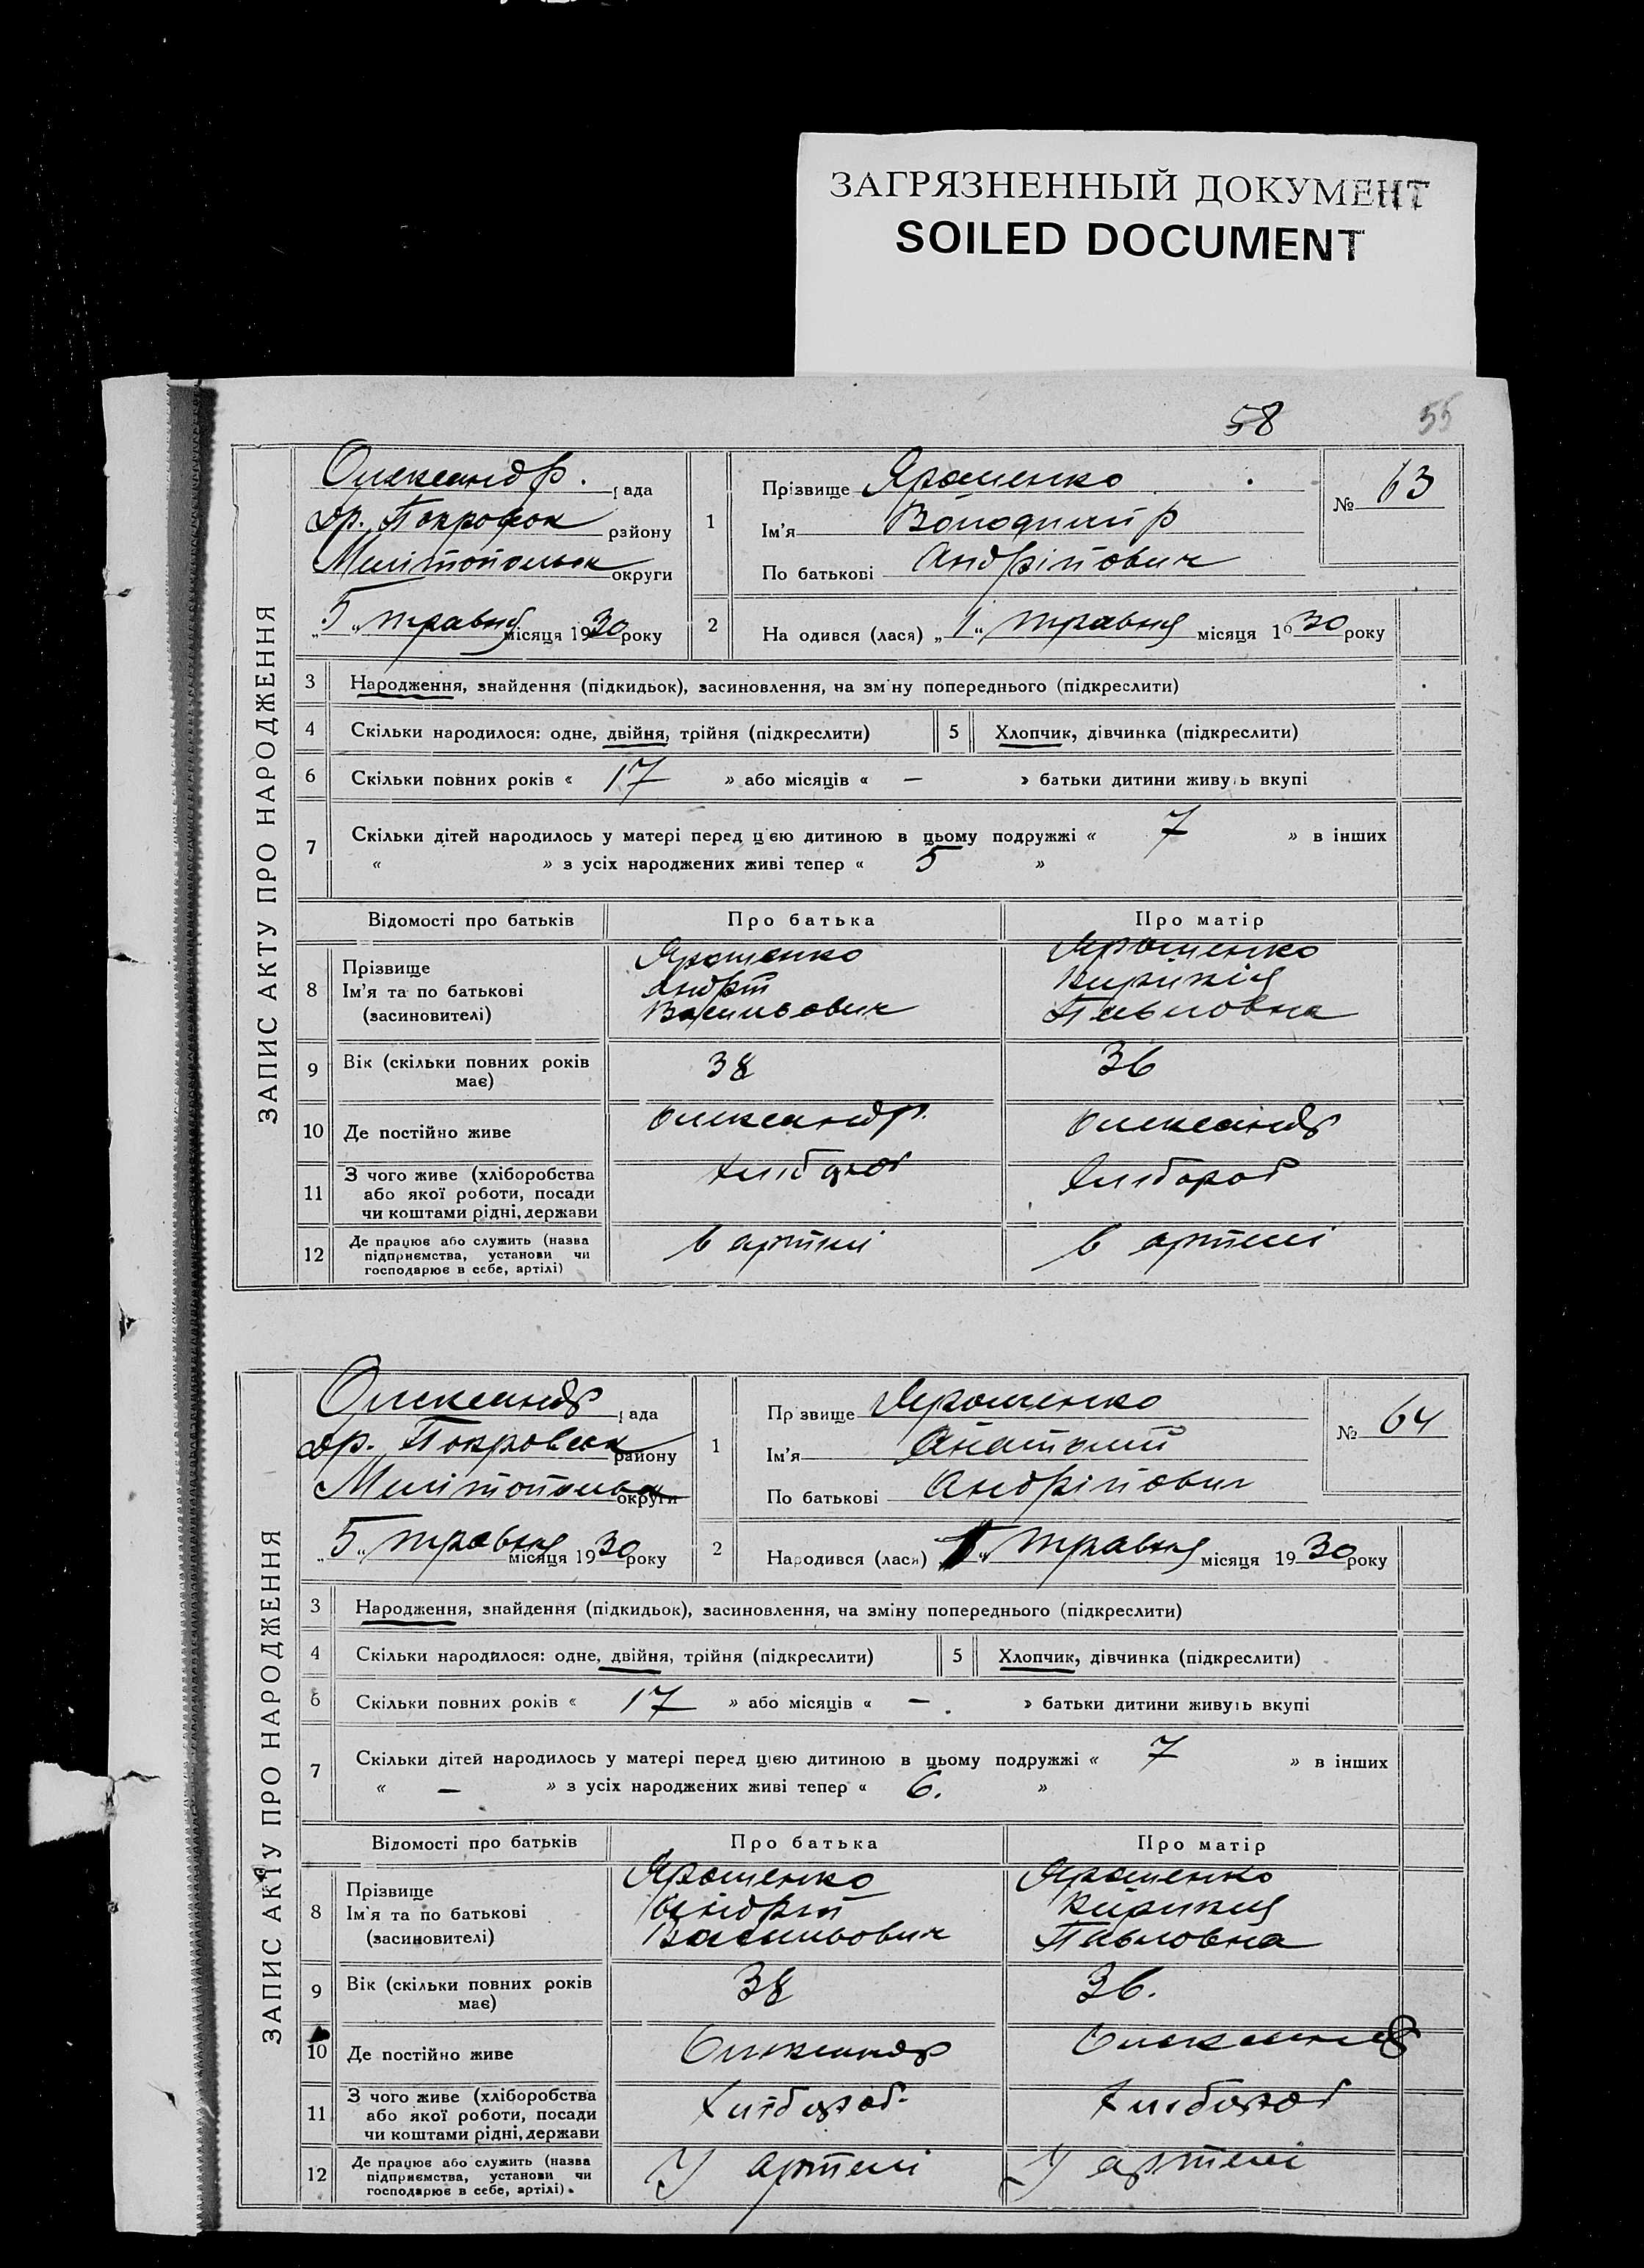 ЗАГРЯЗНЕННЫЙ ДОКУМЕНТ
SOILED DOCUMENT
58
55
ЗАПИС АКТУ ПРО НАРОДЖЕННЯ
Олександр. рада
др. Покровськ району
Мелітопольськ округи
„5“ травня місяця 1930 року
1 Прізвище Ярошенко
Ім'я Володимир
По батькові Андрійович
№ 63
2 На одився (лася) „1“ травня місяця 1930 року
3 Народження, знайдення (підкидьок), засиновлення, на зміну попереднього (підкреслити)
4 Скільки народилося: одне, двійня, трійня (підкреслити) 5 Хлопчик, дівчинка (підкреслити)
6 Скільки повних років « 17 » або місяців « — » батьки дитини живуть вкупі
7 Скільки дітей народилось у матері перед цією дитиною в цьому подружжі « 7 » в інших
« » з усіх народжених живі тепер « 5 »
Відомості про батьків Про батька Про матір
8 Прізвище Ярошенко Ярошенко
Ім'я та по батькові Андрій
(засиновителі) Васильович Павловна
9 Вік (скільки повних років має) 38 36
10 Де постійно живе Олександр. Олександр
11 З чого живе (хліборобства Хлібороб Хлібороб
або якої роботи, посади
чи коштами рідні, держави
12 Де працює або служить (назва в артілі в артілі
підприємства, установи чи
господарює в себе, артілі)
ЗАПИС АКТУ ПРО НАРОДЖЕННЯ
Олександр рада
др. Покровськ району
Мелітопольськ округи
„5“ травня місяця 1930 року
1 Пр звище Ярошенко
Ім'я Анатолий
По батькові Андрійович
№ 64
2 Народився (лася) травня місяця 1930 року
3 Народження, знайдення (підкидьок), засиновлення, на зміну попереднього (підкреслити)
4 Скільки народилося: одне, двійня, трійня (підкреслити) 5 Хлопчик, дівчинка (підкреслити)
6 Скільки повних років « 17 » або місяців « — » батьки дитини живуть вкупі
7 Скільки дітей народилось у матері перед цією дитиною в цьому подружжі « 7 » в інших
« — » з усіх народжених живі тепер « 6. »
Відомості про батьків Про батька Про матір
8 Прізвище Ярошенко Ярошенко
Ім'я та по батькові Андрій
(засиновителі) Васильович Павловна
9 Вік (скільки повних років має) 38 36.
10 Де постійно живе Олександр Олександр
11 З чого живе (хліборобства Хлібороб. Хлібороб
або якої роботи, посади
чи коштами рідні, держави
12 Де працює або служить (назва У артелі У артелі
підприємства, установи чи
господарює в себе, артілі).